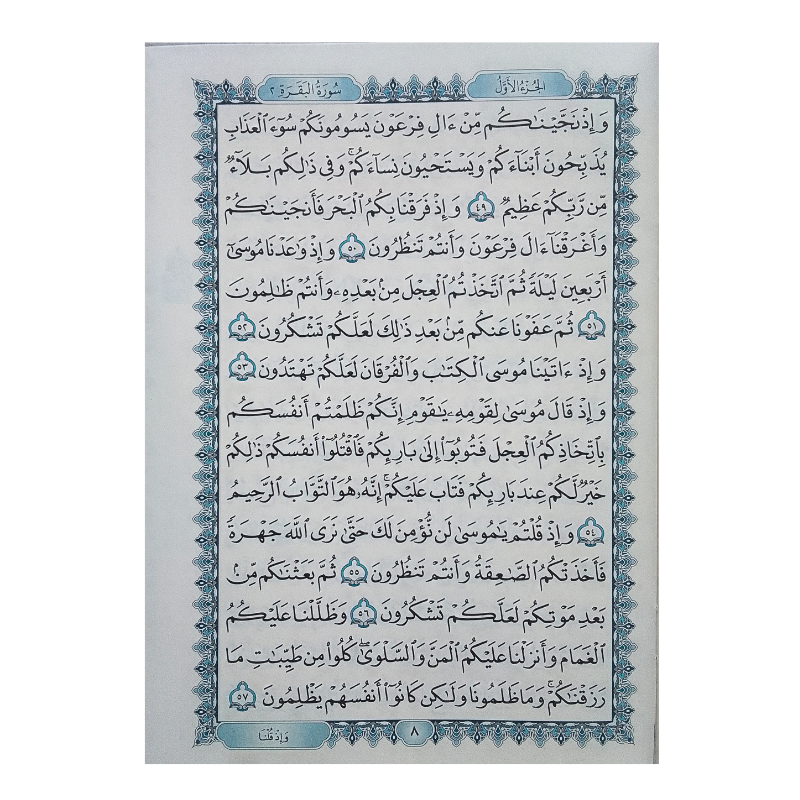 الجُزْءُ الأَوَّلُ
سُورَةُ البَقَرَةِ ٢
وَإِذْ نَجَّيْنَٰكُم مِّنْ ءَالِ فِرْعَوْنَ يَسُومُونَكُمْ سُوٓءَ ٱلْعَذَابِ
يُذَبِّحُونَ أَبْنَآءَكُمْ وَيَسْتَحْيُونَ نِسَآءَكُمْ ۚ وَفِى ذَٰلِكُم بَلَآءٌ
مِّن رَّبِّكُمْ عَظِيمٌ ٤٩ وَإِذْ فَرَقْنَا بِكُمُ ٱلْبَحْرَ فَأَنجَيْنَٰكُمْ
وَأَغْرَقْنَآ ءَالَ فِرْعَوْنَ وَأَنتُمْ تَنظُرُونَ ٥٠ وَإِذْ وَٰعَدْنَا مُوسَىٰٓ
أَرْبَعِينَ لَيْلَةً ثُمَّ ٱتَّخَذْتُمُ ٱلْعِجْلَ مِنۢ بَعْدِهِۦ وَأَنتُمْ ظَٰلِمُونَ
٥١ ثُمَّ عَفَوْنَا عَنكُم مِّنۢ بَعْدِ ذَٰلِكَ لَعَلَّكُمْ تَشْكُرُونَ ٥٢
وَإِذْ ءَاتَيْنَا مُوسَى ٱلْكِتَٰبَ وَٱلْفُرْقَانَ لَعَلَّكُمْ تَهْتَدُونَ ٥٣
وَإِذْ قَالَ مُوسَىٰ لِقَوْمِهِۦ يَٰقَوْمِ إِنَّكُمْ ظَلَمْتُمْ أَنفُسَكُم
بِٱتِّخَاذِكُمُ ٱلْعِجْلَ فَتُوبُوٓا۟ إِلَىٰ بَارِئِكُمْ فَٱقْتُلُوٓا۟ أَنفُسَكُمْ ذَٰلِكُمْ
خَيْرٌ لَّكُمْ عِندَ بَارِئِكُمْ فَتَابَ عَلَيْكُمْ ۚ إِنَّهُۥ هُوَ ٱلتَّوَّابُ ٱلرَّحِيمُ
٥٤ وَإِذْ قُلْتُمْ يَٰمُوسَىٰ لَن نُّؤْمِنَ لَكَ حَتَّىٰ نَرَى ٱللَّهَ جَهْرَةً
فَأَخَذَتْكُمُ ٱلصَّٰعِقَةُ وَأَنتُمْ تَنظُرُونَ ٥٥ ثُمَّ بَعَثْنَٰكُم مِّنۢ
بَعْدِ مَوْتِكُمْ لَعَلَّكُمْ تَشْكُرُونَ ٥٦ وَظَلَّلْنَا عَلَيْكُمُ
ٱلْغَمَامَ وَأَنزَلْنَا عَلَيْكُمُ ٱلْمَنَّ وَٱلسَّلْوَىٰ ۖ كُلُوا۟ مِن طَيِّبَٰتِ مَا
رَزَقْنَٰكُمْ ۚ وَمَا ظَلَمُونَا وَلَٰكِن كَانُوٓا۟ أَنفُسَهُمْ يَظْلِمُونَ ٥٧
٨
وَإِذْ قُلْنَا